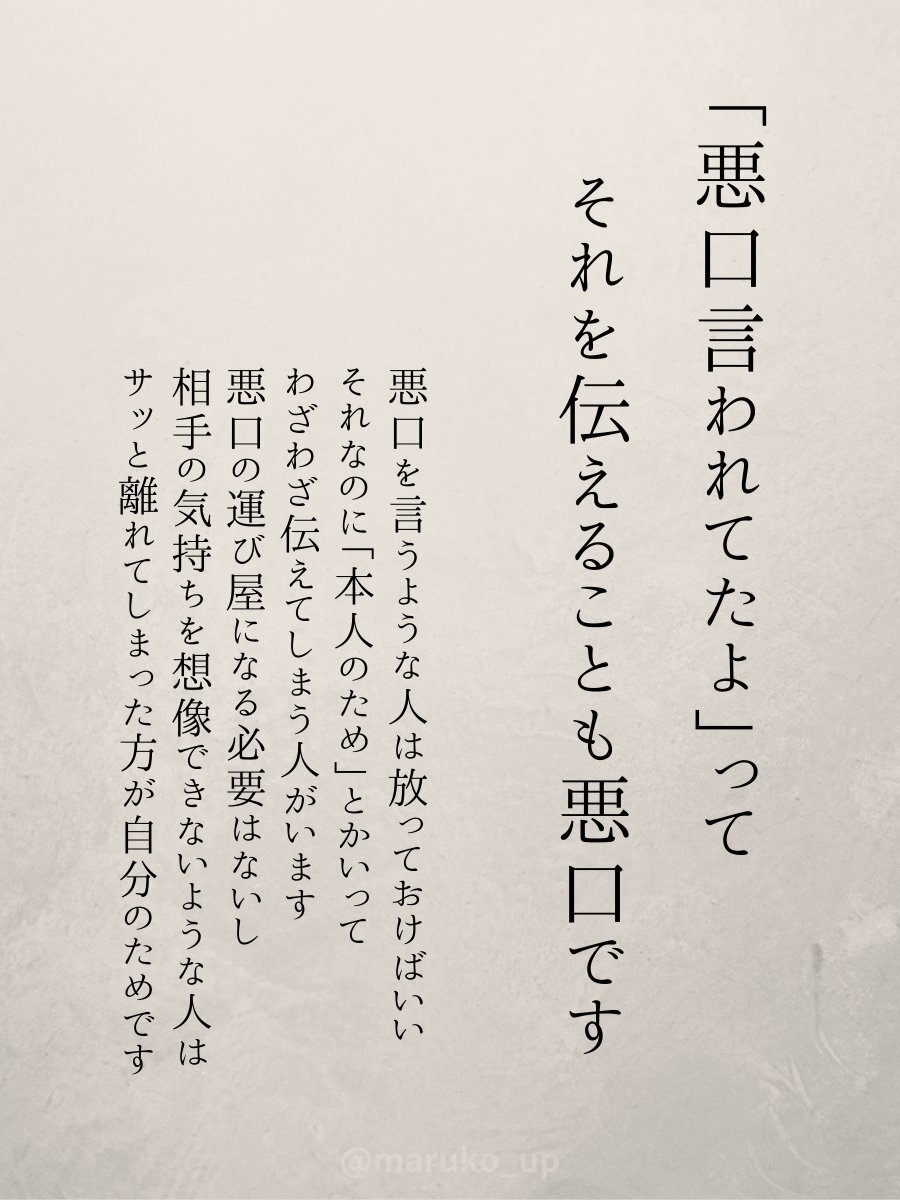 「悪口言われてたよ」って
それを伝えることも悪口です
悪口を言うような人は放っておけばいい
それなのに「本人のため」とかいって
わざわざ伝えてしまう人がいます
悪口の運び屋になる必要はないし
相手の気持ちを想像できないような人は
サッと離れてしまった方が自分のためです
@maruko_up